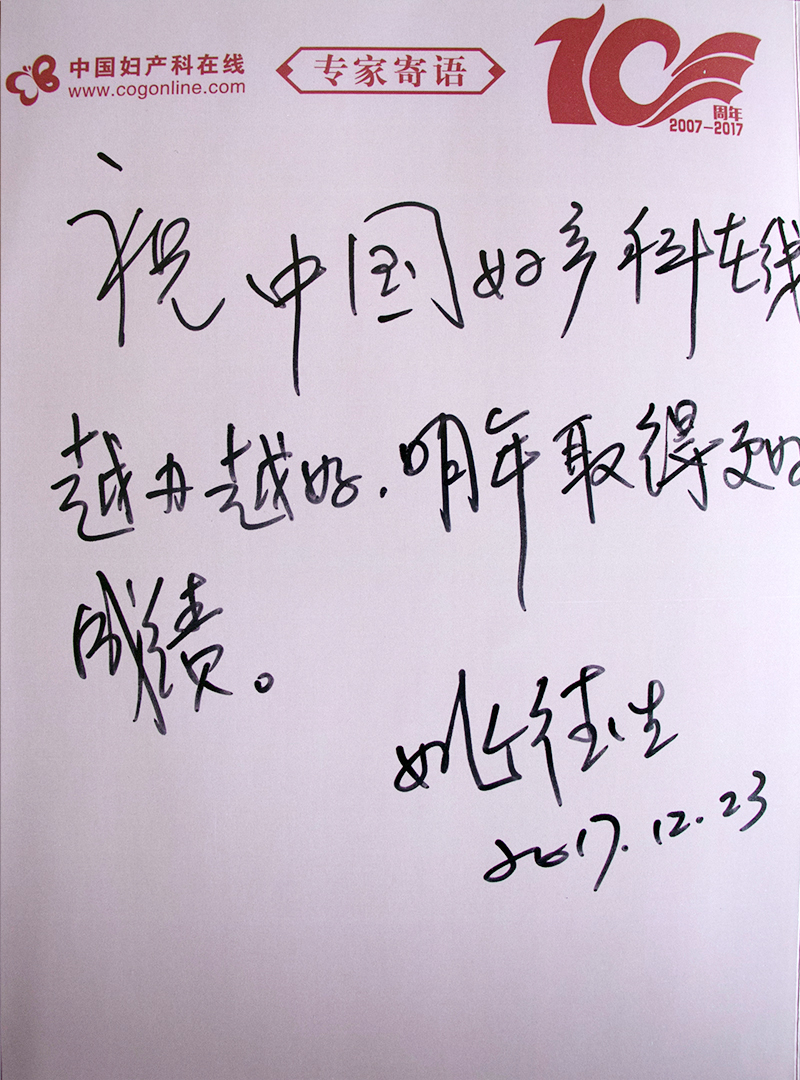 中国妇产科在线
www.cogonline.com
专家寄语
10
周年
2007-2017
祝中国妇产科在线
越办越好.明年取得更好
成绩。
2017.12.23